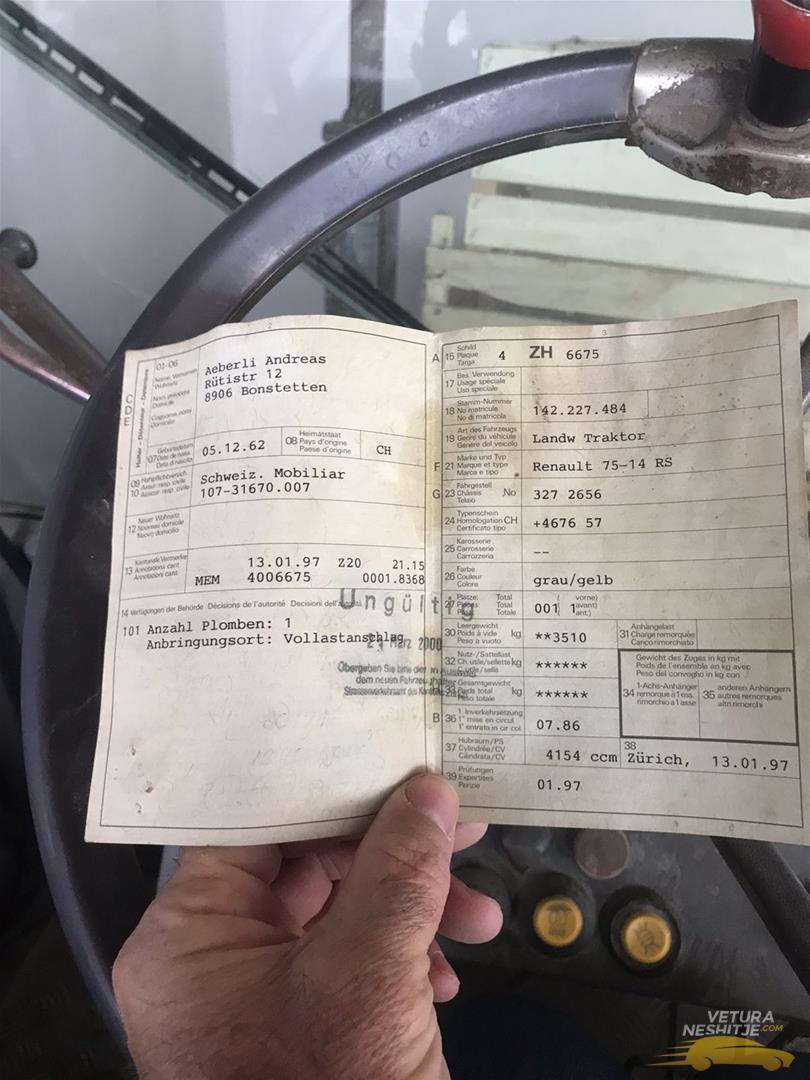 2
C
D
E
Halter - Détenteur - Detentore
01-06
Name, Vornamen
Wohnsitz
Nom, prénoms
Domicile
Cognome, nomi
Domicilio
Aeberli Andreas
Rütistr 12
8906 Bonstetten
07 Geburtsdatum
Date de naiss.
Data di nascita
05.12.62
08 Heimatstaat
Pays d'origine
Paese d'origine
CH
09 Haftpflichtversich.
10 Assur. resp. civile
Assicur. resp. civile
Schweiz. Mobiliar
107-31670.007
12 Neuer Wohnsitz
Nouveau domicile
Nuovo domicilio
13 Kantonale Vermerke
Annotations cant.
Annotazioni cant.
13.01.97 Z20 21.15
MEM 4006675 0001.8368
14 Verfügungen der Behörde Décisions de l'autorité Decisioni dell'autorità
101 Anzahl Plomben: 1
Anbringungsort: Vollastanschlag
Ungültig
März 2000
Übergeben Sie bitte
dem neuen Fahrzeughalter
Strassenverkehrsamt des Kantons
3
A 15 Schild
Plaque
Targa
4 ZH 6675
17 Bes. Verwendung
Usage spéciale
Uso speciale
18 Stamm-Nummer
No matricule
No di matricola
142.227.484
19 Art des Fahrzeugs
Genre du véhicule
Genere del veicolo
Landw Traktor
F 21 Marke und Typ
Marque et type
Marca e tipo
Renault 75-14 RS
G 23 Fahrgestell
Châssis No
Telaio
327 2656
24 Typenschein
Homologation CH
Certificato tipo
+4676 57
25 Karosserie
Carrosserie
Carrozzeria
--
26 Farbe
Couleur
Colore
grau/gelb
27 Plätze: Total
Places: Total
Totale
( vorne)
avant)
ant.)
001 1
30 Leergewicht
Poids à vide kg
Peso a vuoto
**3510
31 Anhängelast
Charge remorquée
Carico rimorchiato
32 Nutz-/Sattellast
Ch. utile/sellette kg
C. utile/sella
******
Gewicht des Zuges in kg mit
Poids de l'ensemble en kg avec
Peso del convoglio in kg con
33 Gesamtgewicht
Poids total kg
Peso totale
******
34 1-Achs-Anhänger
remorque à 1 ess.
rimorchio a 1 asse
35 anderen Anhängern
autres remorques
altri rimorchi
B 36 1. Inverkehrsetzung
1re mise en circul.
1a entrata in circol.
07.86
37 Hubraum/PS
Cylindrée/CV
Cilindrata/CV
4154 ccm
38
Zürich, 13.01.97
39 Prüfungen
Expertises
Perizie
01.97
VETURA
NESHITJE.COM